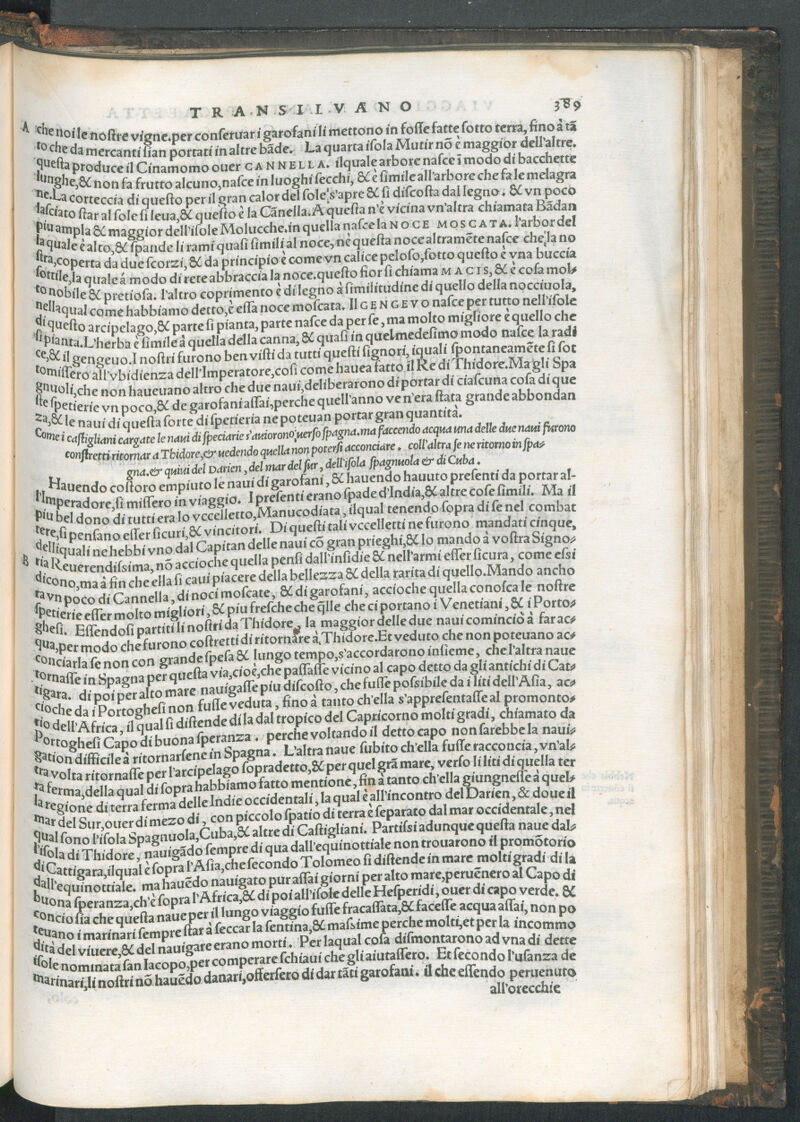 TRANSILVANO 389
A che noi le noſtre vigne.per conſeruar i garofani li mettono in foſſe fatte ſotto terra, fino à tã
to che da mercanti ſian portati in altre bãde. La quarta iſola Mutir nõ è maggior dell'altre.
queſta produce il Cinamomo ouer CANNELLA. ilquale arbore naſce ĩ modo di bacchette
lunghe,& non fa frutto alcuno,naſce in luoghi ſecchi, & è ſimile all'arbore che fa le melagra
ne.La corteccia di queſto per il gran calor del ſole,s'apre & ſi diſcoſta dal legno. & vn poco
laſciato ſtar al ſole ſi leua,& queſto è la Cãnella.A queſta n'è vicina vn'altra chiamata Bãdan
piu ampla & maggior dell'iſole Molucche.in quella naſce la NOCE MOSCATA. l'arbor del
laquale è alto,& ſpande li rami quaſi ſimili al noce, ne queſta noce altramẽte naſce che la no
ſtra,coperta da due ſcorzi,& da principio è come vn calice peloſo,ſotto queſto è vna buccia
ſottile,la quale á modo di rete abbraccia la noce.queſto fior ſi chiama MACIS,& è coſa mol-
to nobile & pretioſa. l'altro coprimento è di legno à ſimilitudine di quello della nocciuola,
nellaqual come habbiamo detto,è eſſa noce moſcata. Il GENGEVO naſce per tutto nell'iſole
di queſto arcipelago,& parte ſi pianta, parte naſce da per ſe, ma molto migliore è quello che
ſi pianta.L'herba è ſimile à quella della canna, & quaſi in quel medeſimo modo naſce la radi
ce,& il gengeuo.I noſtri furono ben viſti da tutti queſti ſignori, iquali ſpontaneamẽte ſi ſot
tomiſſero all'vbidienza dell'Imperatore,coſi come hauea fatto il Re di Thidore.Ma gli Spa
gnuoli,che non haueuano altro che due naui,deliberarono di portar di ciaſcuna coſa di que
ſte ſpetierie vn poco,& de garofani aſſai,perche quell'anno ven'era ſtata grande abbondan
za,& le naui di queſta ſorte di ſpetieria ne poteuan portar gran quantità.
Come i caſtigliani cargate le naui di ſpeciarie s'auiorono uerſo ſpagna.ma faccendo acqua una delle due naui furono
conſtretti ritornar a Thidore,& uedendo quella non poterſi acconciare. coll'altra ſe ne ritorno in ſpa-
gna.& quiui del Darien, del mar del ſur, dell'iſola ſpagnuola & di Cuba.
Hauendo coſtoro empiuto le naui di garofani, & hauendo hauuto preſenti da portar al-
l'Imperadore,ſi miſſero in viaggio. I preſenti erano ſpade d'India,& altre coſe ſimili. Ma il
piu bel dono di tutti era lo vccelletto,Manucodiata, ilqual tenendo ſopra di ſe nel combat
tere,ſi penſano eſſer ſicuri,& vincitori. Di queſti tali vccelletti ne furono mandati cinque,
delliquali ne hebbi vno dal Capitan delle naui cõ gran prieghi,& lo mando à voſtra Signo-
B ria Reuerendiſsima, nõ accioche quella penſi dall'inſidie & nell'armi eſſer ſicura, come eſsi
dicono,ma à fin che ella ſi caui piacere della bellezza & della rarita di quello.Mando ancho
ra vn poco di Cannella, di noci moſcate, & di garofani, accioche quella conoſca le noſtre
ſpetierie eſſer molto migliori,& piu freſche che q̃lle che ci portano i Venetiani, & i Porto-
gheſi. Eſſendoſi partiti li noſtri da Thidore, la maggior delle due naui cominciò à far ac-
qua,per modo che furono coſtretti di ritornare à Thidore.Et veduto che non poteuano ac-
conciarla ſe non con grande ſpeſa & lungo tempo,s'accordarono inſieme, che l'altra naue
tornaſſe in Spagna per queſta via,cioè,che paſſaſſe vicino al capo detto da gli antichi di Cat-
tigara. di poi per alto mare nauigaſſe piu diſcoſto, che fuſſe poſsibile da i liti dell'Aſia, ac-
cioche da i Portogheſi non fuſſe veduta, fino à tanto ch'ella s'appreſentaſſe al promonto-
rio dell'Africa, il qual ſi diſtende di la dal tropico del Capricorno molti gradi, chiamato da
Portogheſi Capo di buona ſperanza. perche voltando il detto capo non ſarebbe la naui-
gation difficile à ritornarſene in Spagna. L'altra naue ſubito ch'ella fuſſe racconcia, vn'al-
tra volta ritornaſſe per l'arcipelago ſopradetto,& per quel grã mare, verſo li liti di quella ter
ra ferma,della qual di ſopra habbiamo fatto mentione, fin à tanto ch'ella giungneſſe à quel-
la regione di terra ferma delle Indie occidentali, la qual è all'incontro del Darien, & doue il
mar del Sur,ouer di mezo di, con piccolo ſpatio di terra è ſeparato dal mar occidentale, nel
qual ſono l'iſola Spagnuola,Cuba,& altre di Caſtigliani. Partiſsi adunque queſta naue dal-
l'iſola di Thidore, nauigãdo ſempre di qua dall'equinottiale non trouarono il promõtorio
di Cattigara,ilqual è ſopra l'Aſia,che ſecondo Tolomeo ſi diſtende in mare molti gradi di la
dall'equinottiale. ma hauẽdo nauigato pur aſſai giorni per alto mare,peruẽnero al Capo di
buona ſperanza,ch'è ſopra l'Africa,& di poi all'iſole delle Heſperidi, ouer di capo verde. &
concio ſia che queſta naue per il lungo viaggio fuſſe fracaſſata,& faceſſe acqua aſſai, non po
teuano i marinari ſempre ſtar à ſeccar la ſentina,& maſsime perche molti,et per la incommo
dità del viuere,& del nauigare erano morti. Per laqual coſa diſmontarono ad vna di dette
iſole nominata ſan Iacopo,per comperare ſchiaui che gli aiutaſſero. Et ſecondo l'uſanza de
marinari,li noſtri nõ hauẽdo danari,offerſero di dar tãti garofani. il che eſſendo peruenuto
all'orecchie